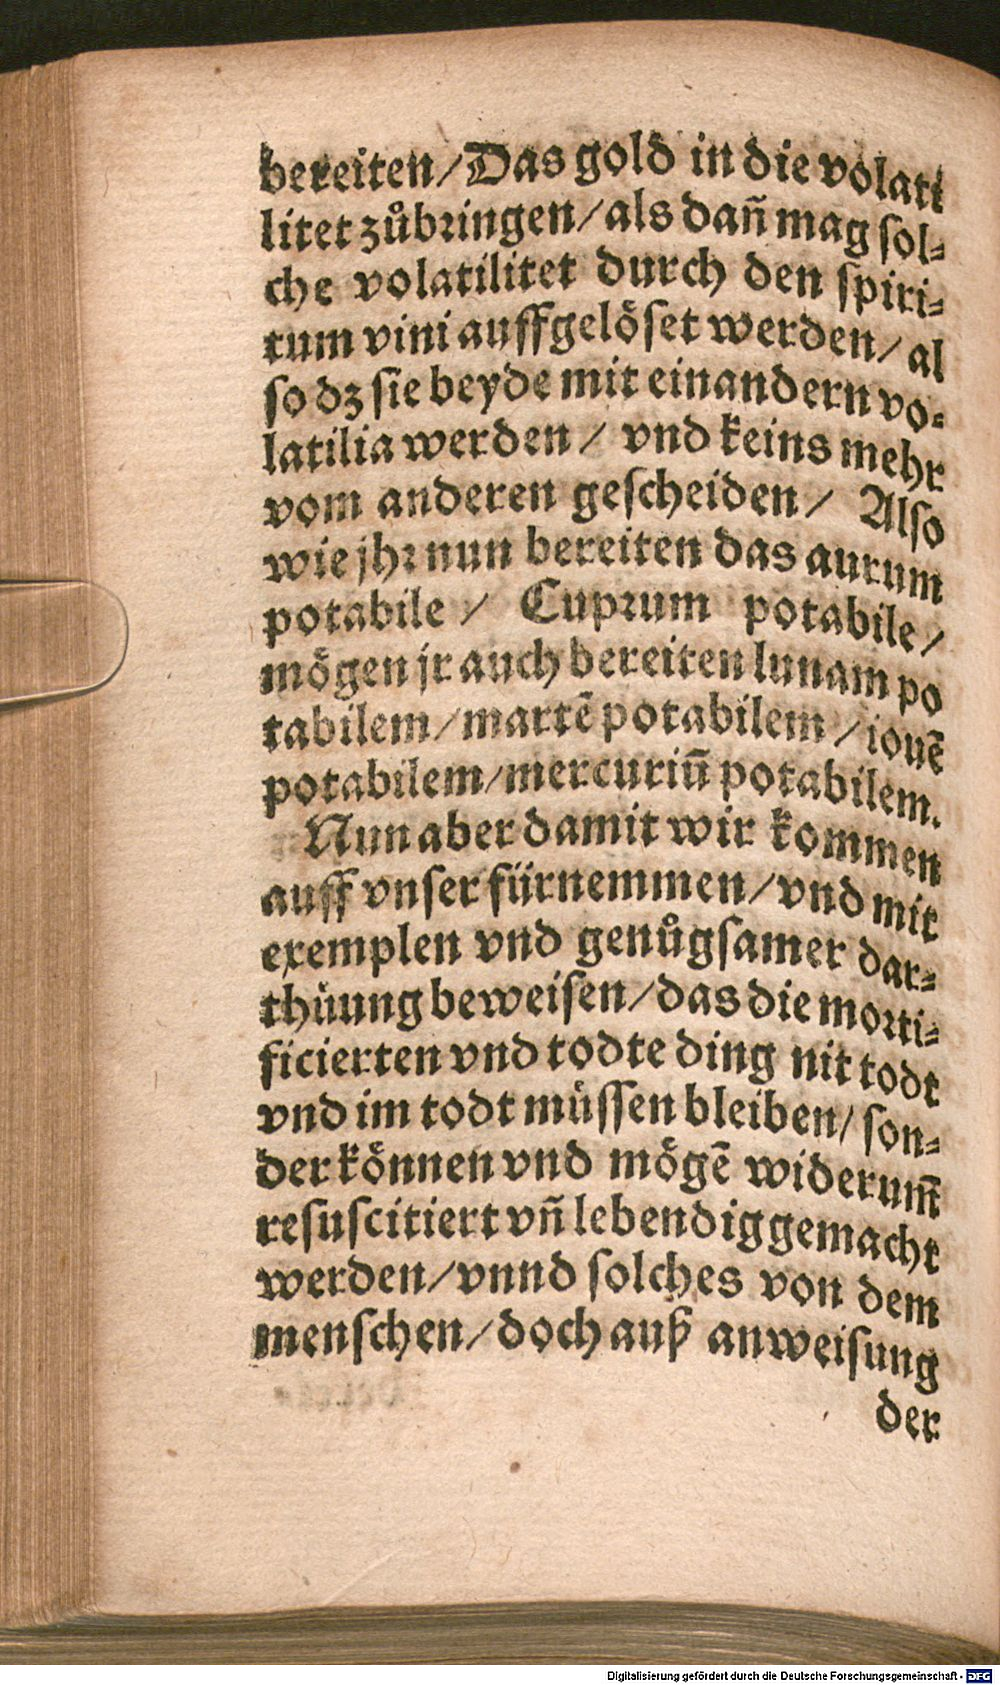 bereiten/Das gold in die volati
litet zůbringen/als dañ mag sol⸗
che volatilitet durch den spiri⸗
tum vini auffgelöset werden/ al
so dz sie beyde mit einandern vo⸗
latilia werden / vnd keins mehr
vom anderen gescheiden/ Also
wie jhr nun bereiten das aurum
potabile / Cuprum potabile /
mögen jr auch bereiten lunam po
tabilem/martē potabilem /iouē
potabilem/mercuriū potabilem.
Nun aber damit wir kommen
auff vnser fürnemmen/vnd mit
exemplen vnd genůgsamer dar⸗
thüung beweisen/das die morti⸗
ficierten vnd todte ding nit todt
vnd im todt müssen bleiben/ son⸗
der können vnd mögē widerum̄
resuscitiert vñ lebendig gemacht
werden/vnnd solches von dem
menschen/doch auß anweisung
der
Digitalisierung gefördert durch die Deutsche Forschungsgemeinschaft - DFG